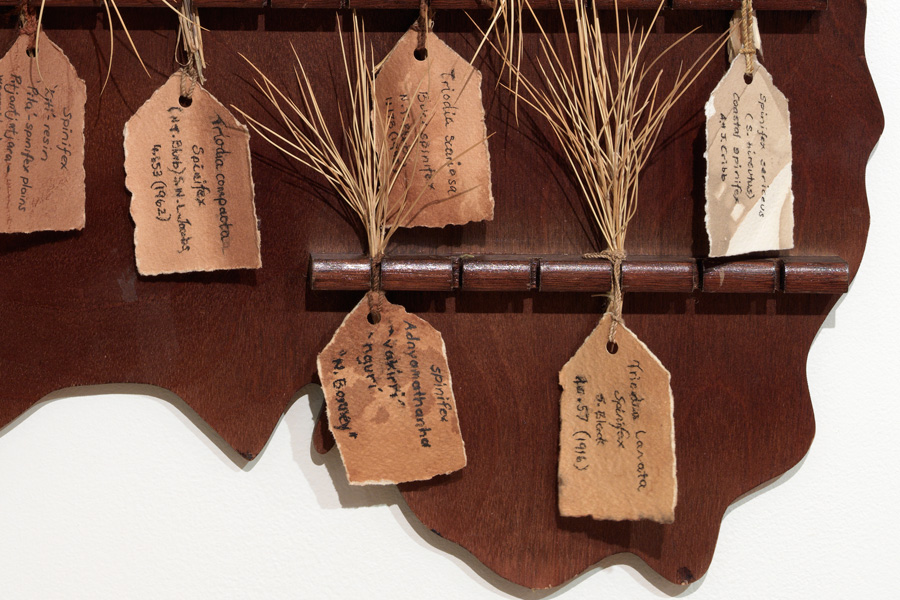 Spinifex
resin
Pita - spinifex plains
Pitjantjatjara
Triodia compacta
Spinifex
(N.T. Burb) S.W.L. Jacobs
4.653 (1962)
Triodia scariosa
spinifex
Spinifex sericeus
(S. hirsutus)
coastal spinifex
A & J. Cribb
spinifex
Adnyamathanha
"vakirri"
"nguri"
"N. Boney"
Triodia Lanata
Spinifex
J. Black
A10.57 (1916)